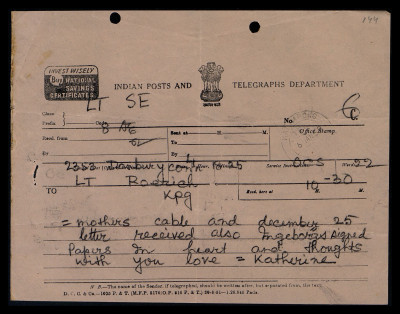 144
INVEST WISELY
Buy NATIONAL
SAVINGS
CERTIFICATES
INDIAN POSTS AND TELEGRAPHS DEPARTMENT
LT SE
Class
Prefix
No. 6 C.
Office Stamp.
Recd. from
Sent at H. M.
By
To
By
2353 Danbury Conn 25
Service Instructions
Words 22
TO
LT Roerich
KPG
Recd. here at 10 -30 M.
= mothers cable and december 25
letter received also Ingeborgs signed
Papers In heart and thoughts
with you love = Katherine
N.B.—The name of the Sender, if telegraphed, should be written after, but separated from, the text.